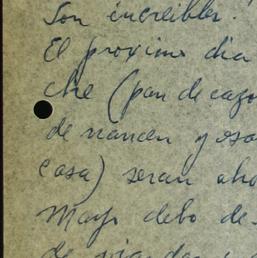 son increibles.
El proximo dia
che (pan de cazo
de nancen y oso
casa) seran aho
Mayo debo de